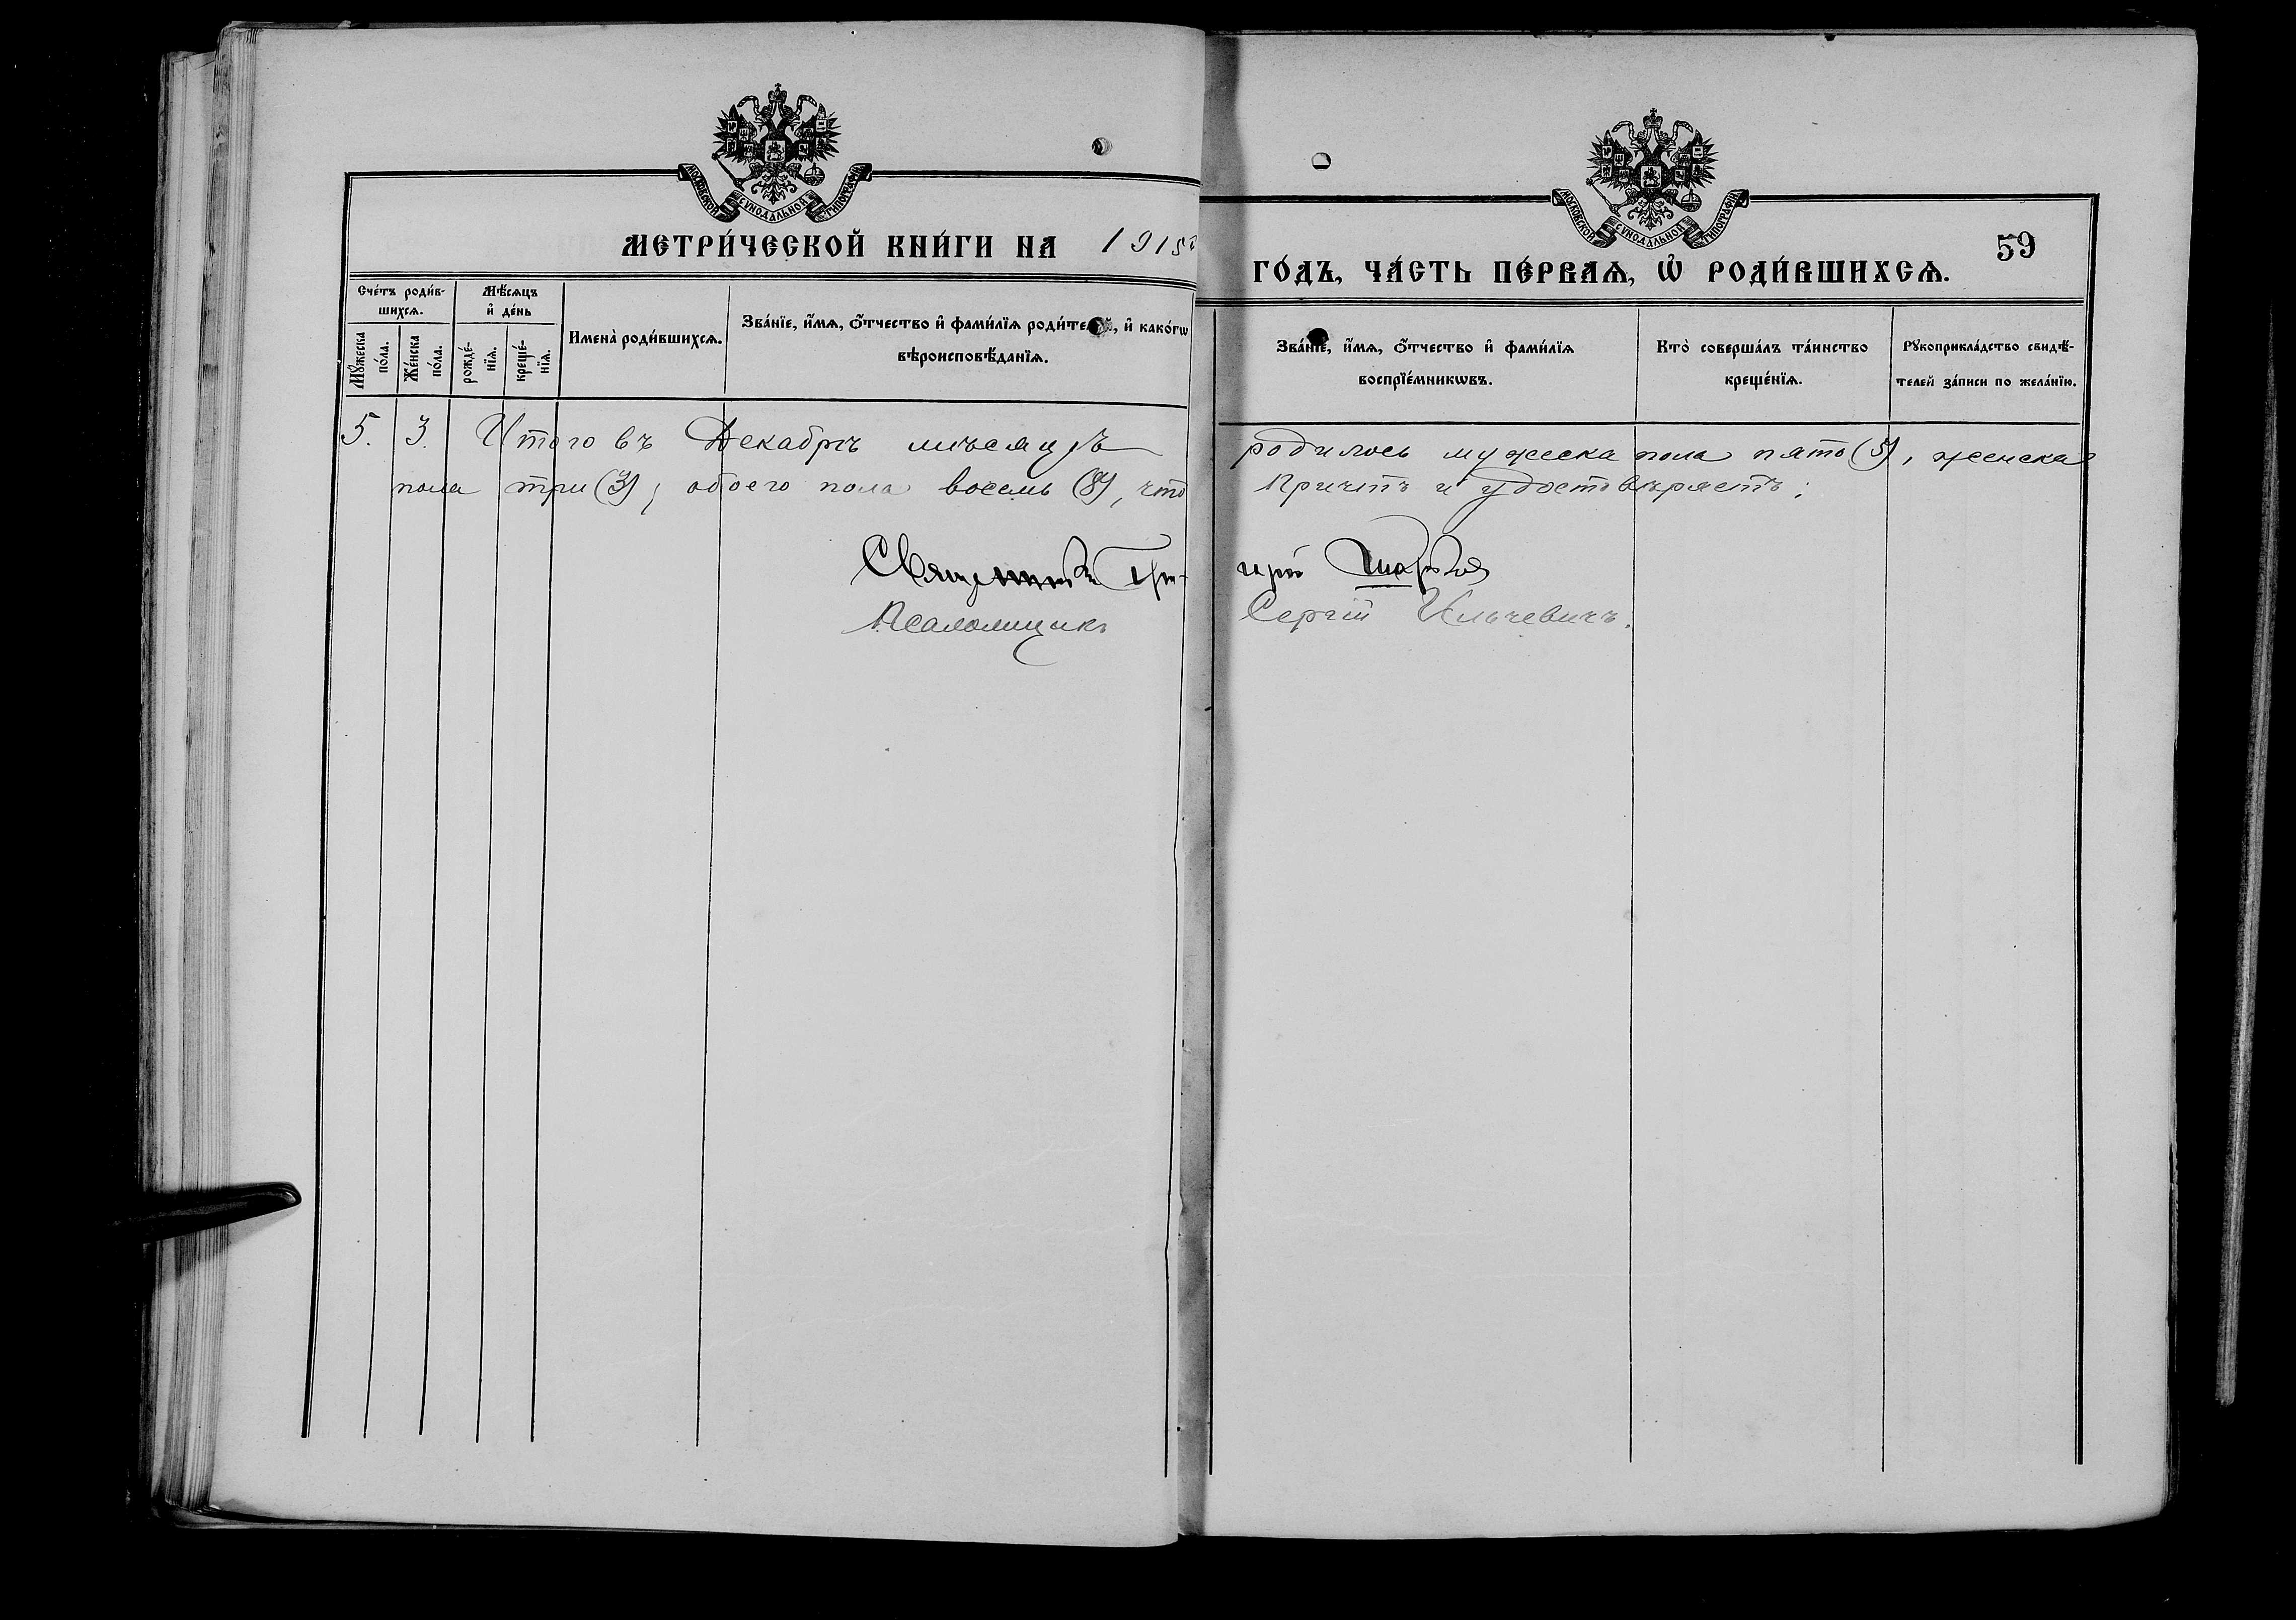 МОСКОВСКОЙ СУНОДАЛЬНОЙ ТИПОГРАФІИ
МОСКОВСКОЙ СУНОДАЛЬНОЙ ТИПОГРАФІИ
МЕТРИ́ЧЕСКОЙ КНИ́ГИ НА 1915
ГО́ДЪ, ЧА́СТЬ ПЕ́РВАѦ, Ѡ҆ РОДИ́ВШИХСѦ.
59
Сче́тъ роди́в-
шихсѧ.
Мꙋ́жеска
по́ла.
Же́нска
по́ла.
Мѣ́сѧцъ
и҆ де́нь
рожде́-
нїѧ.
креще́-
нїѧ.
Имена̀ роди́вшихсѧ.
Зва́нїе, и҆́мѧ, ѻ҆́тчество и҆ фами́лїѧ роди́телей, и҆ како́гѡ
вѣроисповѣ́данїѧ.
Зва́нїе, и҆́мѧ, ѻ҆́тчество и҆ фами́лїѧ
воспрїе́мникѡвъ.
Кто̀ соверша́лъ та́инство
креще́нїѧ.
Рꙋкоприкла́дство свидѣ́-
телей за́писи по жела́нїю.
5. 3. Итого въ Декабрѣ мѣсяцѣ родилось мужеска пола пять (5), женска
пола три (3), обоего пола восемь (8), что Причтъ и удостовѣряетъ:
Священникъ Григорій
Псаломщикъ Сергій Ильчевичъ.